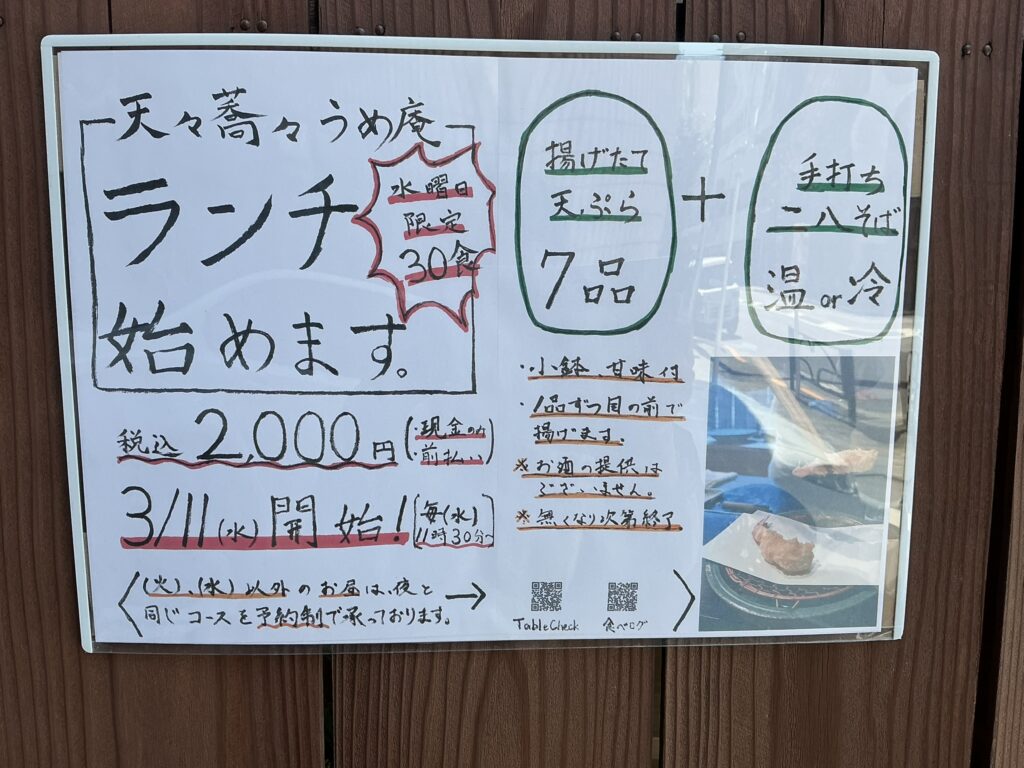 天々蕎々うめ庵
ランチ
始めます。
水曜日
限定
30食
税込 2,000円 (・現金のみ
・前払い)
3/11(水) 開始! [毎(水)
11時30分~]
揚げたて
天ぷら
7品
+
手打ち
二八そば
温 or 冷
・小鉢、甘味付
・1品ずつ目の前で
揚げます。
※お酒の提供は
ございません。
※無くなり次第終了
〈(火)、(水)以外のお昼は、夜と
同じコースを予約制で承っております。→
TableCheck 食べログ〉